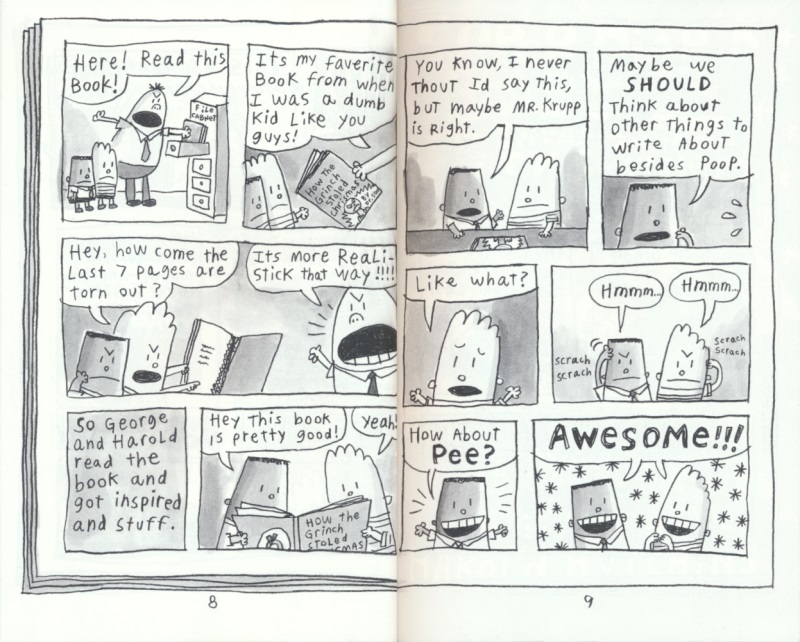 Here! Read this
Book!
FiLe
CABNeT
Its my faverite
Book from when
I was a dumb
Kid Like you
guys!
How the
Grinch
Stoled
Christmas
Hey, how come the
Last 7 pages are
torn out?
Its more ReaLi-
Stick that way!!!!
So George
and Harold
read the
book and
got inspired
and stuff.
Hey This book
is pretty good!
Yeah!
How the
Grinch
Stoled
8
You Know, I never
Thout Id say this,
but maybe MR. Krupp
is Right.
Maybe we
SHOULD
Think about
other Things to
Write About
besides Poop.
Like what?
Hmmm..
Hmmm..
scrach
scrach
Scrach
Scrach
How About
Pee?
AWeSOMe!!!
9